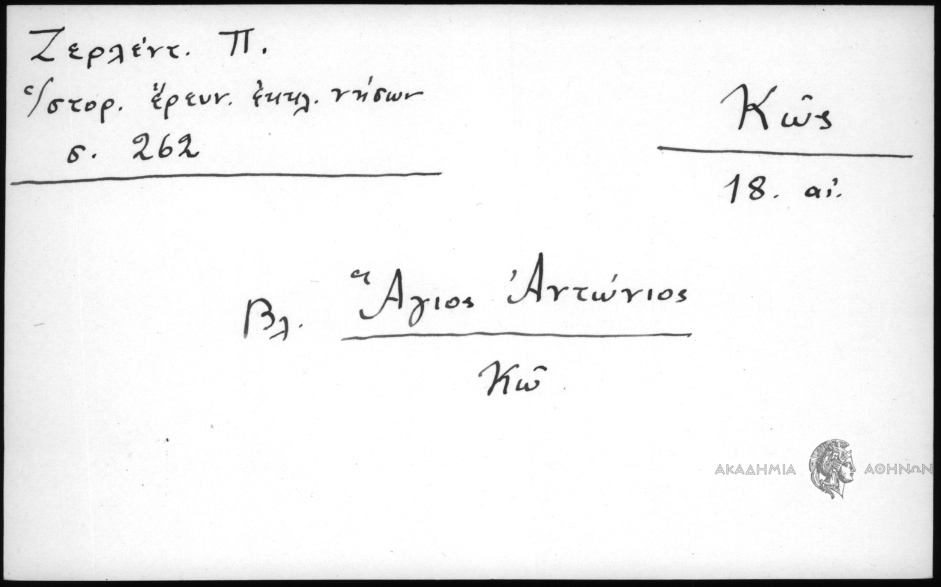 Ζερλέντ. Π.
Ἱστορ. ἔρευν. ἐκκλ. νήσων
σ. 262
Κῶς
18. αἰ.
Βλ. Ἅγιος Ἀντώνιος
Κῶ
ΑΚΑΔΗΜΙΑ ΑΘΗΝΩΝ